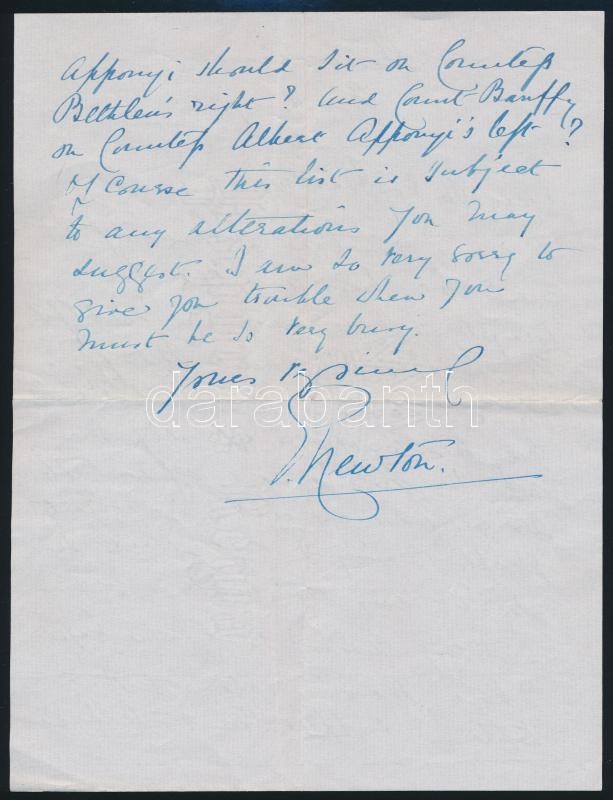 Apponyi should sit on Countess
Bethlen's right? And Count Banffy
on Countess Albert Apponyi's left?
Of course this list is subject
to any alterations you may
suggest. I am so very sorry to
give you trouble when you
must be so very busy.
Yours sincerely
darabanth
Newton.